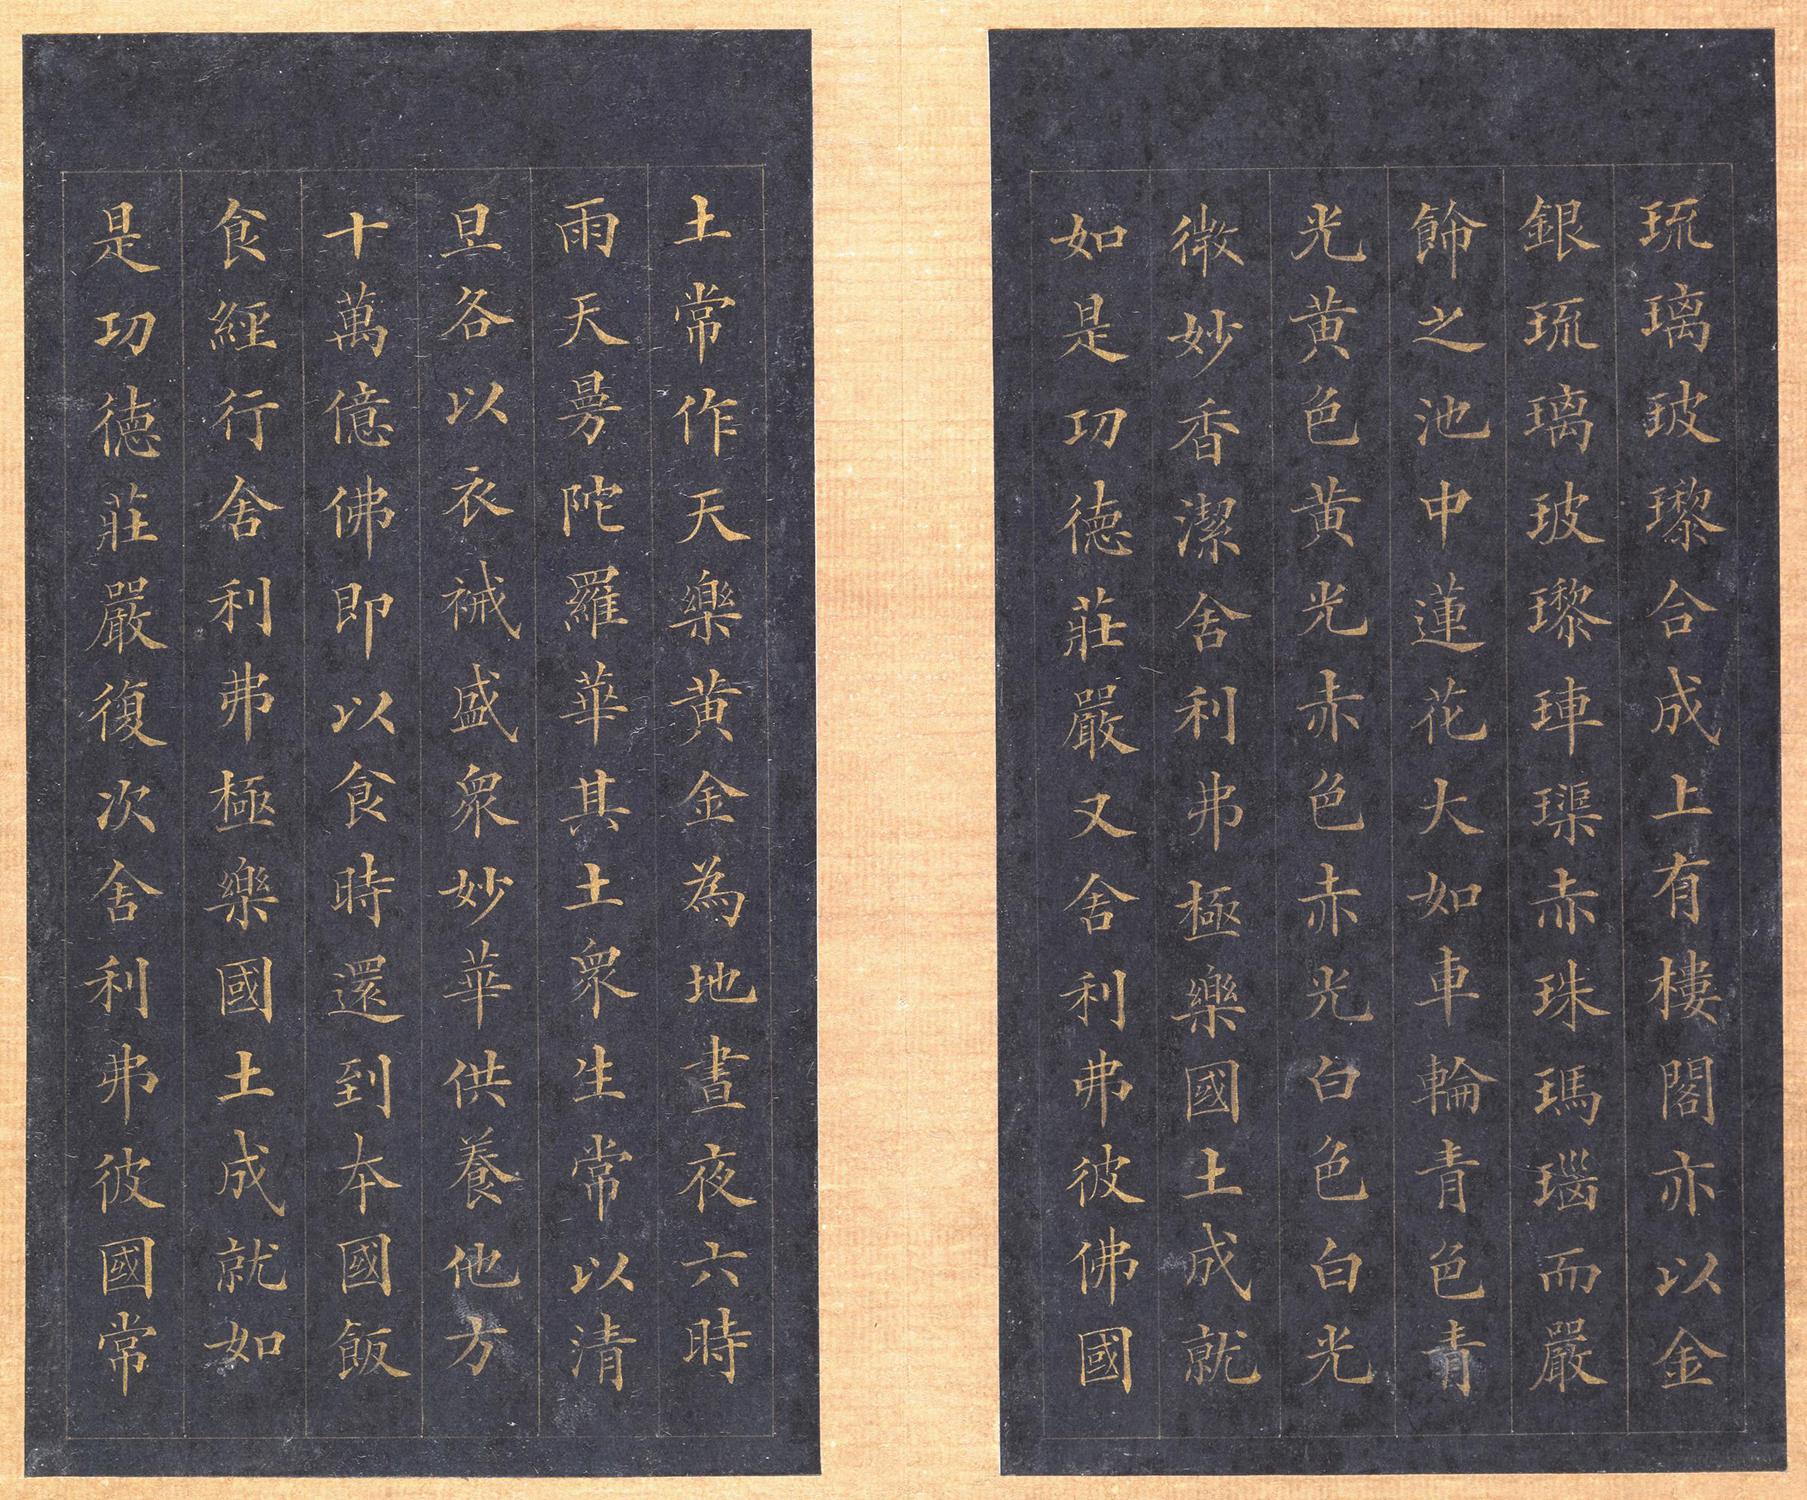 琉璃玻瓈合成上有樓閣亦以金
銀琉璃玻瓈硨磲赤珠瑪瑙而嚴
飾之池中蓮花大如車輪青色青
光黃色黃光赤色赤光白色白光
微妙香潔舍利弗極樂國土成就
如是功德莊嚴又舍利弗彼佛國
土常作天樂黃金為地晝夜六時
雨天曼陀羅華其土眾生常以清
旦各以衣祴盛眾妙華供養他方
十萬億佛即以食時還到本國飯
食經行舍利弗極樂國土成就如
是功德莊嚴復次舍利弗彼國常